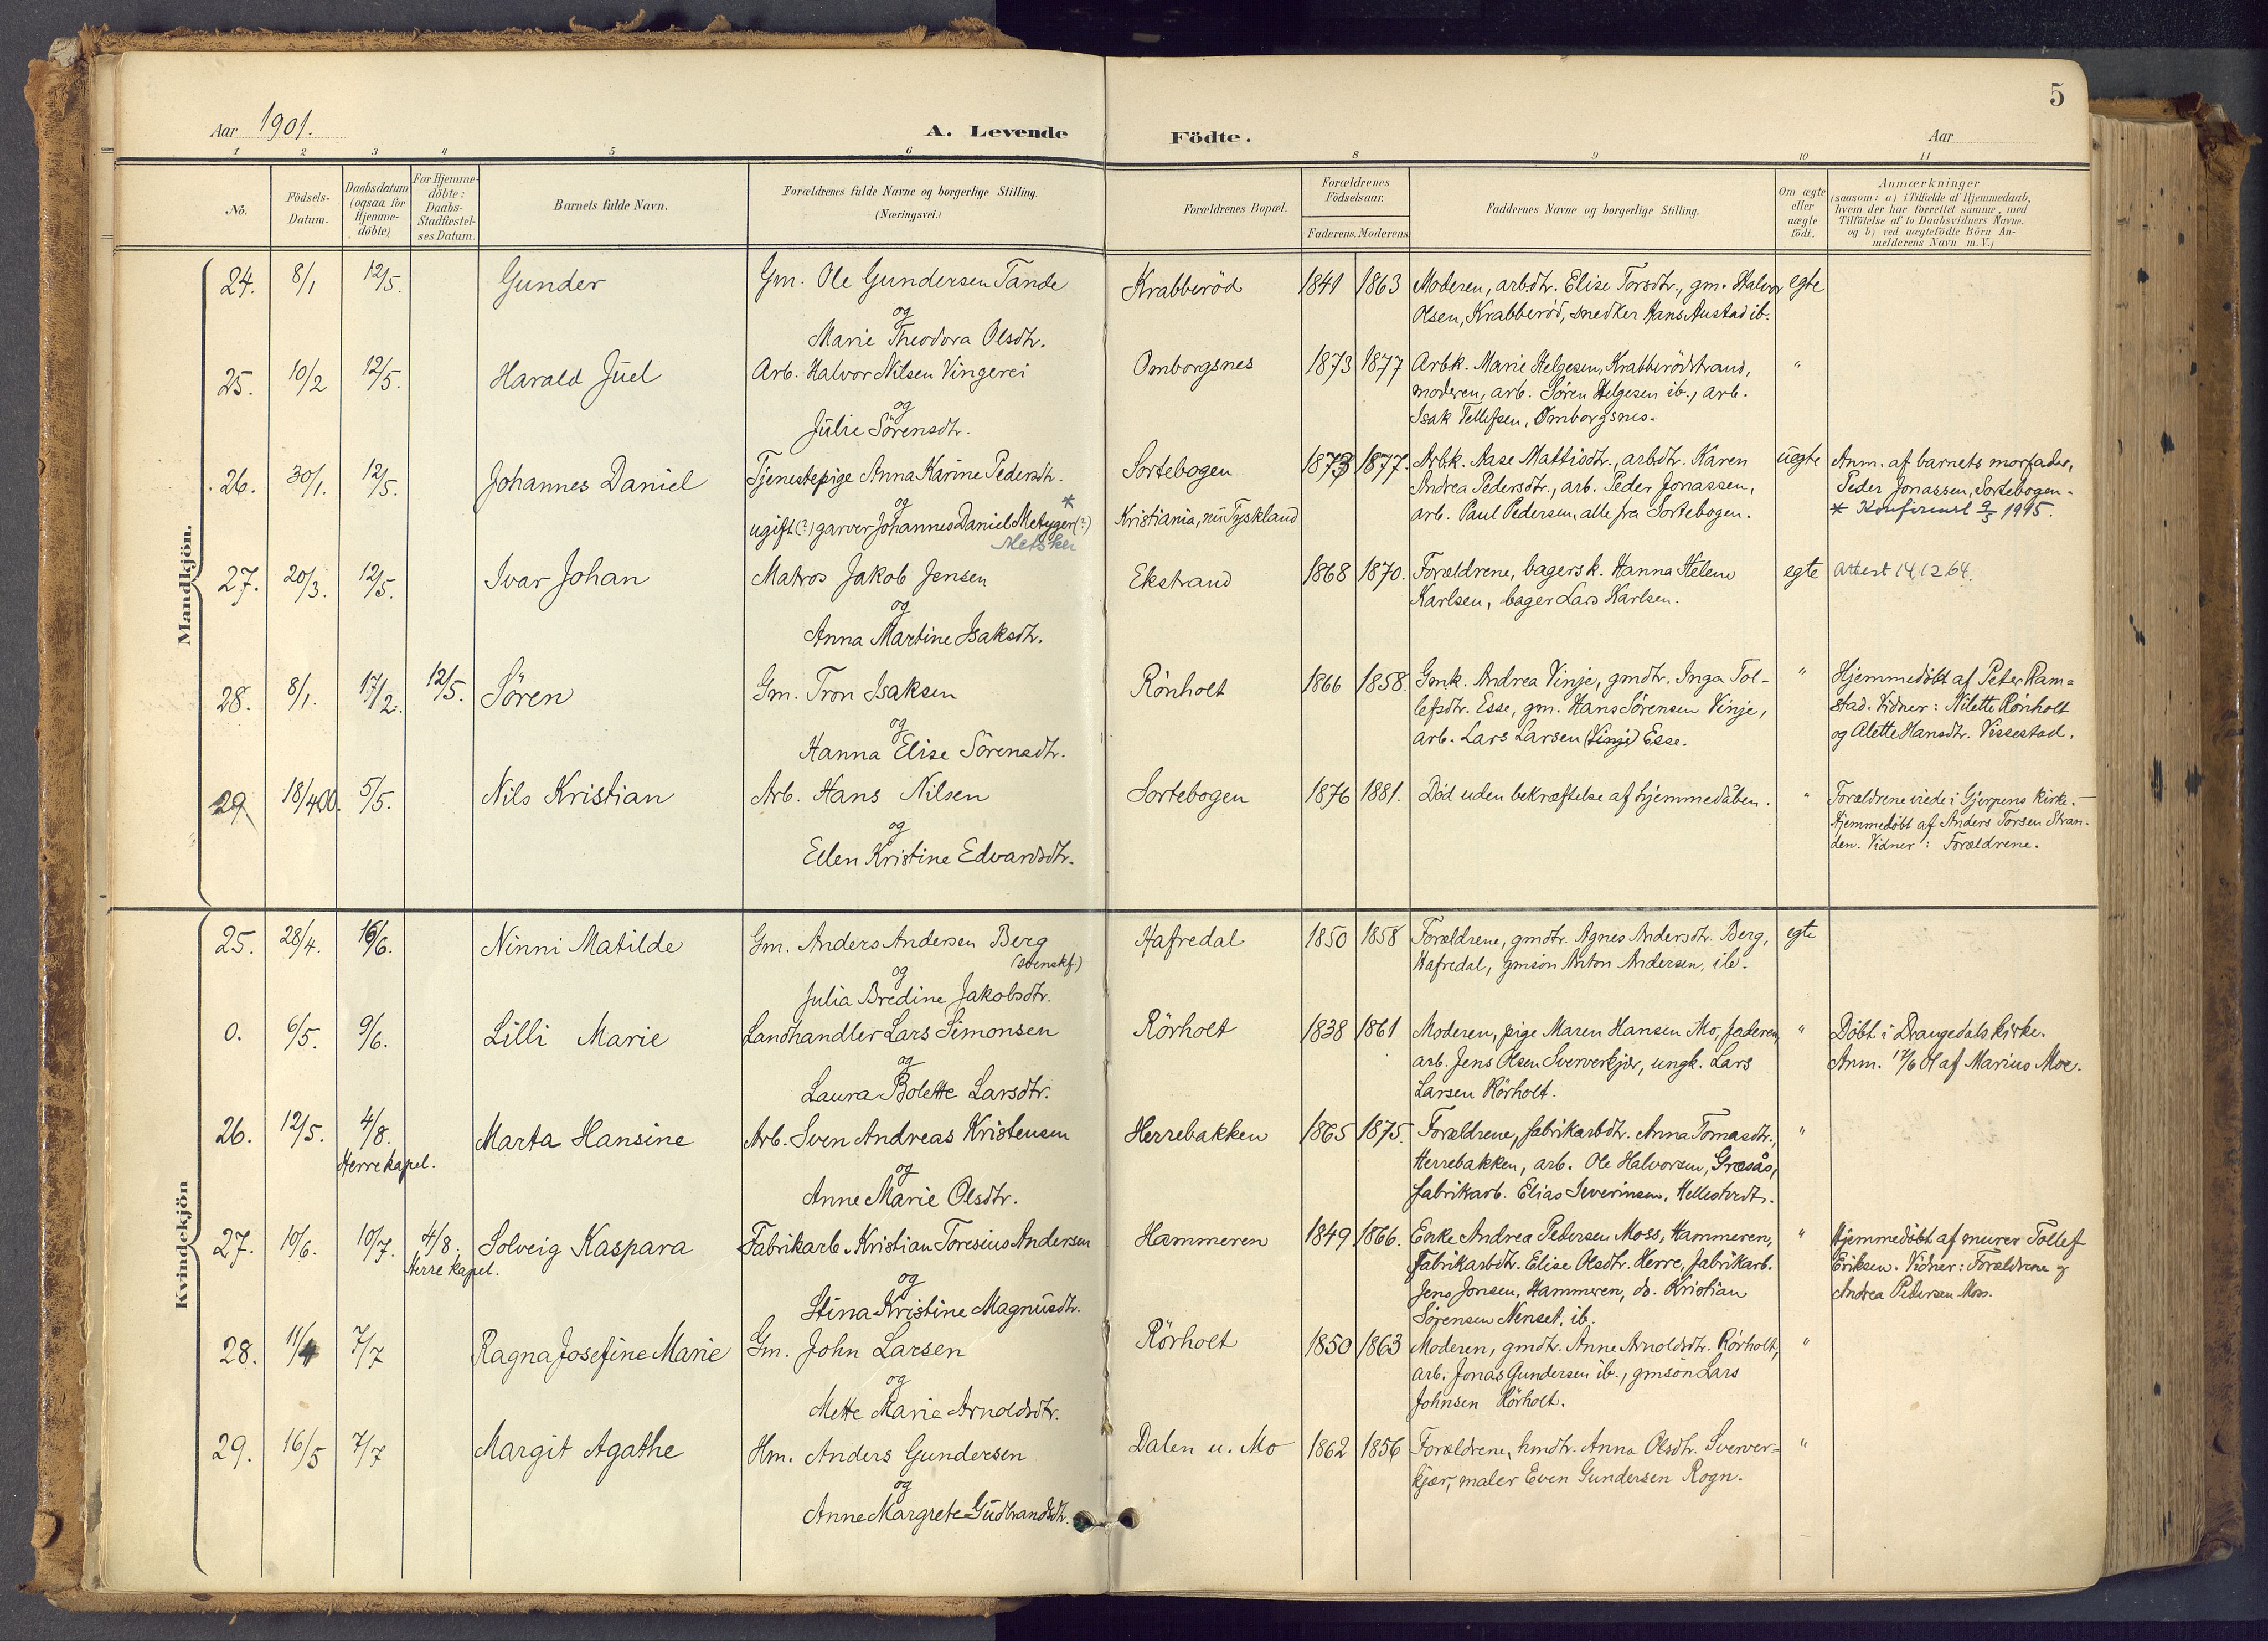 5
Aar 1901.
A. Levende Födte.
Aar
1 2 3 4 5 6 8 9 10 11
No.
Födsels-
Datum.
Daabsdatum
(ogsaa for
Hjemme-
döbte)
For Hjemme-
döbte:
Daabs-
Stadfæstel-
ses Datum.
Barnets fulde Navn.
Forældrenes fulde Navne og borgerlige Stilling.
(Næringsvei.)
Forældrenes Bopæl.
Forældrenes
Födselsaar.
Faderens. Moderens
Faddernes Navne og borgerlige Stilling.
Om ægte
eller
uægte
födt.
Anmærkninger
(saasom: a) i Tilfælde af Hjemmedaab,
hvem der har forrettet samme, med
Tilföielse af to Daabsvidners Navne.
og b) ved uægtefödte Börn An-
melderens Navn m. V.)
Mandkjön.
24. 8/1 12/5. Gunder
Gm. Ole Gundersen Tande
og
Marie Theodora Olsdtr.
Krabberöd 1841 1863
Moderen, arbdtr. Elise Torsdtr., gm. Halvor
Olsen, Krabberöd, snedker Hans Austad ib.
egte
25. 10/2 12/5. Harald Juel
Arb. Halvor Nilsen Vingerei
og
Julie Sörensdtr.
Omborgsnes 1873 1877
Arbk. Marie Helgesen, Krabberödstrand,
moderen, arb. Sören Helgesen ib., arb.
Isak Tellefsen, Omborgsnes.
"
26. 30/1. 12/5. Johannes Daniel
Tjenestepige Anna Karine Pedersdtr.
og *
ugift (?) garver Johannes Daniel Metzger (?)
Metsker
Sortebogen
Kristiania, nu Tyskland
1873 1877.
Arbk. Aase Mattisdtr., arbdtr. Karen
Andrea Pedersdtr., arb. Peder Jonassen,
arb. Paul Pedersen, alle fra Sortebogen.
uegte
Anm. af barnets morfader,
Peder Jonassen, Sortebogen.
* Konfirmert 9/5 1915.
27. 20/3. 12/5. Ivar Johan
Matros Jakob Jensen
og
Anna Martine Isaksdtr.
Ekstrand 1868 1870.
Forældrene, bagersk. Hanna Helene
Karlsen, bager Lars Karlsen.
egte
Attest 14.12.64.
28. 8/1. 17/2. 12/5. Sören
Gm. Tron Isaksen
og
Hanna Elise Sörensdtr.
Rönholt 1866 1858.
Gmk. Andrea Vinje, gmdtr. Inga Tol-
lefsdtr. Esse, gm. Hans Sörensen Vinje,
arb. Lars Larsen (Vinje) Esse.
"
Hjemmedöbt af Peter Ram-
stad. Vidner: Nilette Rönholt
og Alette Hansdtr. Vissestad.
29. 18/4 00. 5/5. Nils Kristian
Arb. Hans Nilsen
og
Ellen Kristine Edvardsdtr.
Sortebogen 1876 1881.
Död uden bekræftelse af hjemmedåben.
"
Forældrene viede i Gjerpens kirke.
Hjemmedöbt af Anders Torsen Stran-
den. Vidner: Forældrene.
Kvindekjön
25. 28/4. 16/6. Ninni Matilde
Gm. Anders Andersen Berg
(svenskf.)
og
Julia Bredine Jakobsdtr.
Hafredal 1850 1858
Forældrene, gmdtr. Agnes Andersdtr. Berg,
Hafredal, gmsön Anton Andersen, ib.
egte
0. 6/5. 9/6. Lilli Marie
Landhandler Lars Simonsen
og
Laura Bolette Larsdtr.
Rörholt 1838 1861
Moderen, pige Maren Hansen Mo, faderen,
arb. Jens Olsen Sververkjær, ungk. Lars
Larsen Rörholt.
"
Döbt i Drangedals kirke.
Anm. 17/6 01 af Marius Moe.
26. 12/5. 4/8.
Herre kapel.
Marta Hansine
Arb. Sven Andreas Kristensen
og
Anne Marie Olsdtr.
Herrebakken 1865 1875.
Forældrene, fabrikarbdtr. Anna Tomasdtr.,
Herrebakken, arb. Ole Halvorsen, Græsås,
fabrikarb. Elias Severinsen, Hellestvedt.
"
27. 10/6. 10/7. 4/8.
Herre kapel.
Solveig Kaspara
Fabrikarb. Kristian Toresius Andersen
og
Stina Kristine Magnusdtr.
Hammeren 1849 1866.
Enke Andrea Pedersen Moss, Hammeren,
fabrikarbdtr. Elise Olsdtr. Herre, fabrikarb.
Jens Jonsen, Hammeren, do. Kristian
Sörensen Nenset, ib.
"
Hjemmedöbt af murer Tollef
Eriksen. Vidner: Forældrene og
Andrea Pedersen Moss.
28. 11/4 7/7 Ragna Josefine Marie
Gm. John Larsen
og
Mette Marie Arnoldsdtr.
Rörholt 1850 1863
Moderen, gmdtr. Anne Arnoldsdtr. Rörholt,
arb. Jonas Gundersen ib., gmsön Lars
Johnsen Rörholt.
"
29. 16/5 7/7 Margit Agathe
Hm. Anders Gundersen
og
Anne Margrete Gudbrandsdtr.
Dalen u. Mo 1862 1856
Forældrene, hmdtr. Anna Olsdtr. Sverver-
kjær, maler Even Gundersen Rogn.
"